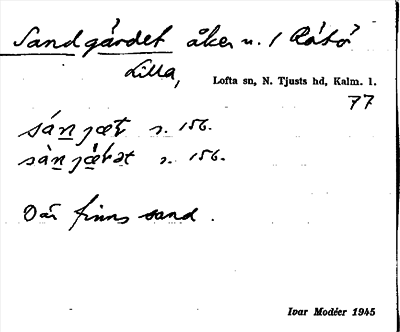 Sandgärdet åker u. 1 Råtö
Lilla,
Lofta sn, N. Tjusts hd, Kalm. l.
77
s. 156.
s. 156.
Där finns sand.
Ivar Modéer 1945